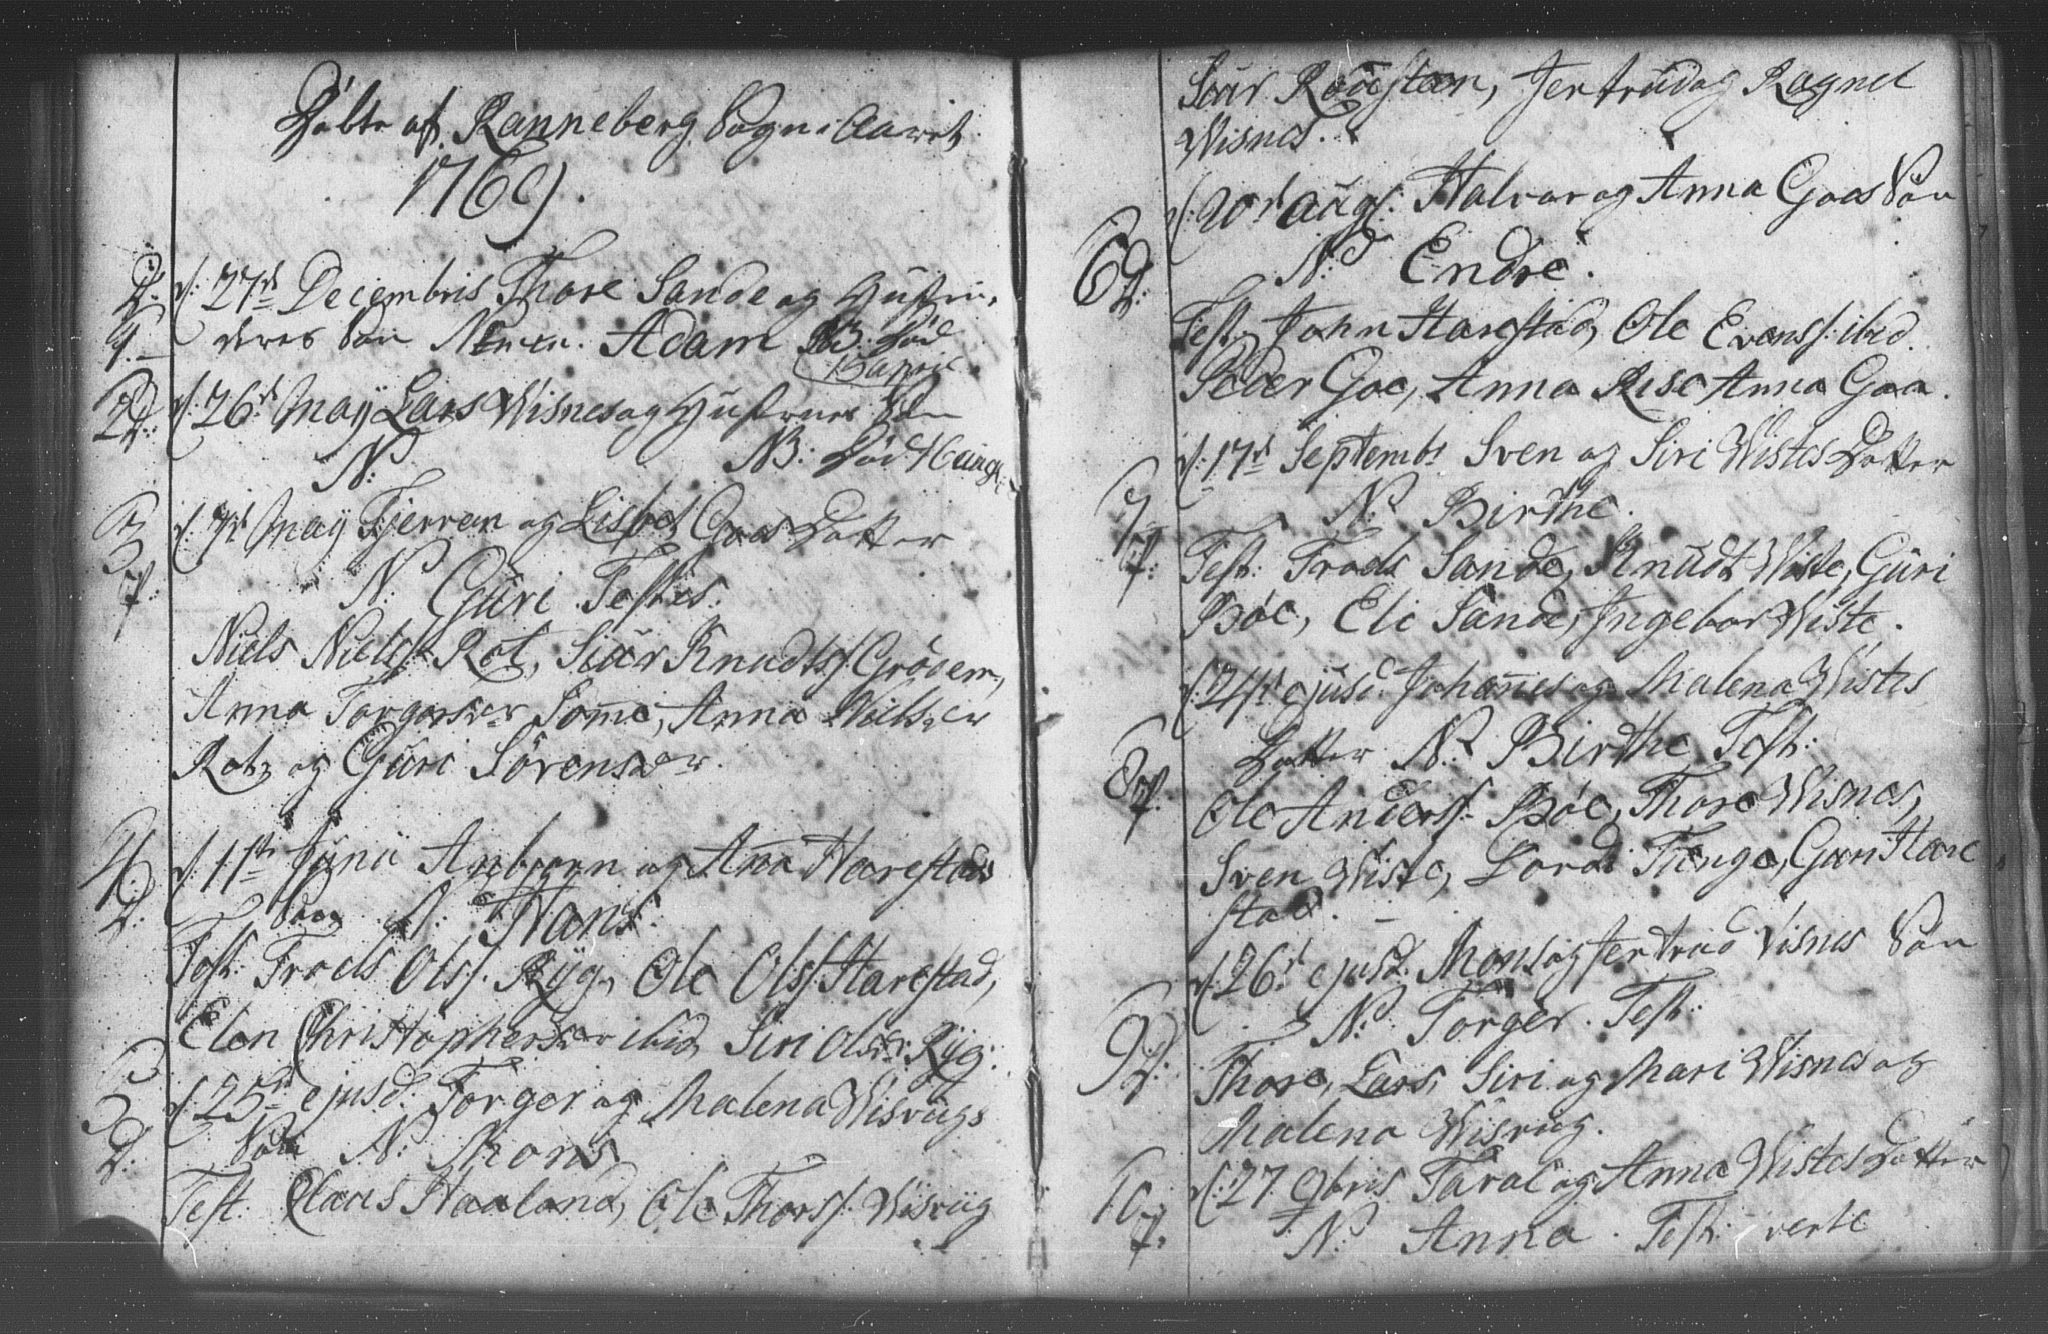 Døbte af Ranneberg Sogn i Aaret
1769.
d: 27de Decembris Thore Sande og Hustrues
1. deres Søn Nomen. Adam NB. Død
April
2 d: 26de May Lars Wisnes og Hustrues Søn
N: NB: død
3 d: May Tjerran og Lisbet Goas Datter
N. Guri Testes.
Niels Nielss. Rot, Siur Knudtss. Grødem,
Anna Torgersdr Sømme, Anna Nielsdr
Rot, og Guri Sørensdr.
4. d: 11te Juni Anbjørn og Anna Harestads
Søn N: Hans.
Test: Troels Olss. Ryg, Ole Olss. Harestad,
Elen Christophersdr ibid, Siri Olsdr Ryg:
5 d: 25de ejusd. Torger og Malena Wisrugs
Søn N: Mons
Test: Claus Haaland, Ole Thorss. Wisrug
Siur Rodestøen, Jertrud og Ragnel
Wisnes.
6 d: 20d Aug: Halvar og Anna Goas Søn
N: Endre.
Test: John Harestad, Ole Evenss. ibid.
Peder Goe, Anna Rise Anna Goa.
7 d: 17de Septembr Sven og Siri Wistes Datter
N: Birthe.
Test: Troels Sande, Knudt Wiste, Guri
Bøe, Eli Sande, Ingebor Wiste.
8 d: 24d ejusd. Johannes og Malena Wistes
Datter N: Birthe Test:
Ole Anderss. Bøe, Thore Wisnes,
Sven Wiste, Lordi Tunge, Guri Hare
stad.
9 d: 26d ejusd. Mons og Jertrud Visnes Søn
N: Torger. Test:
Thore, Lars, Siri og Mari Wisnes og
Malena Wisrug.
10 d: 27 9bris Taral og Anna Wistes Datter
N: Anna. Test: verte